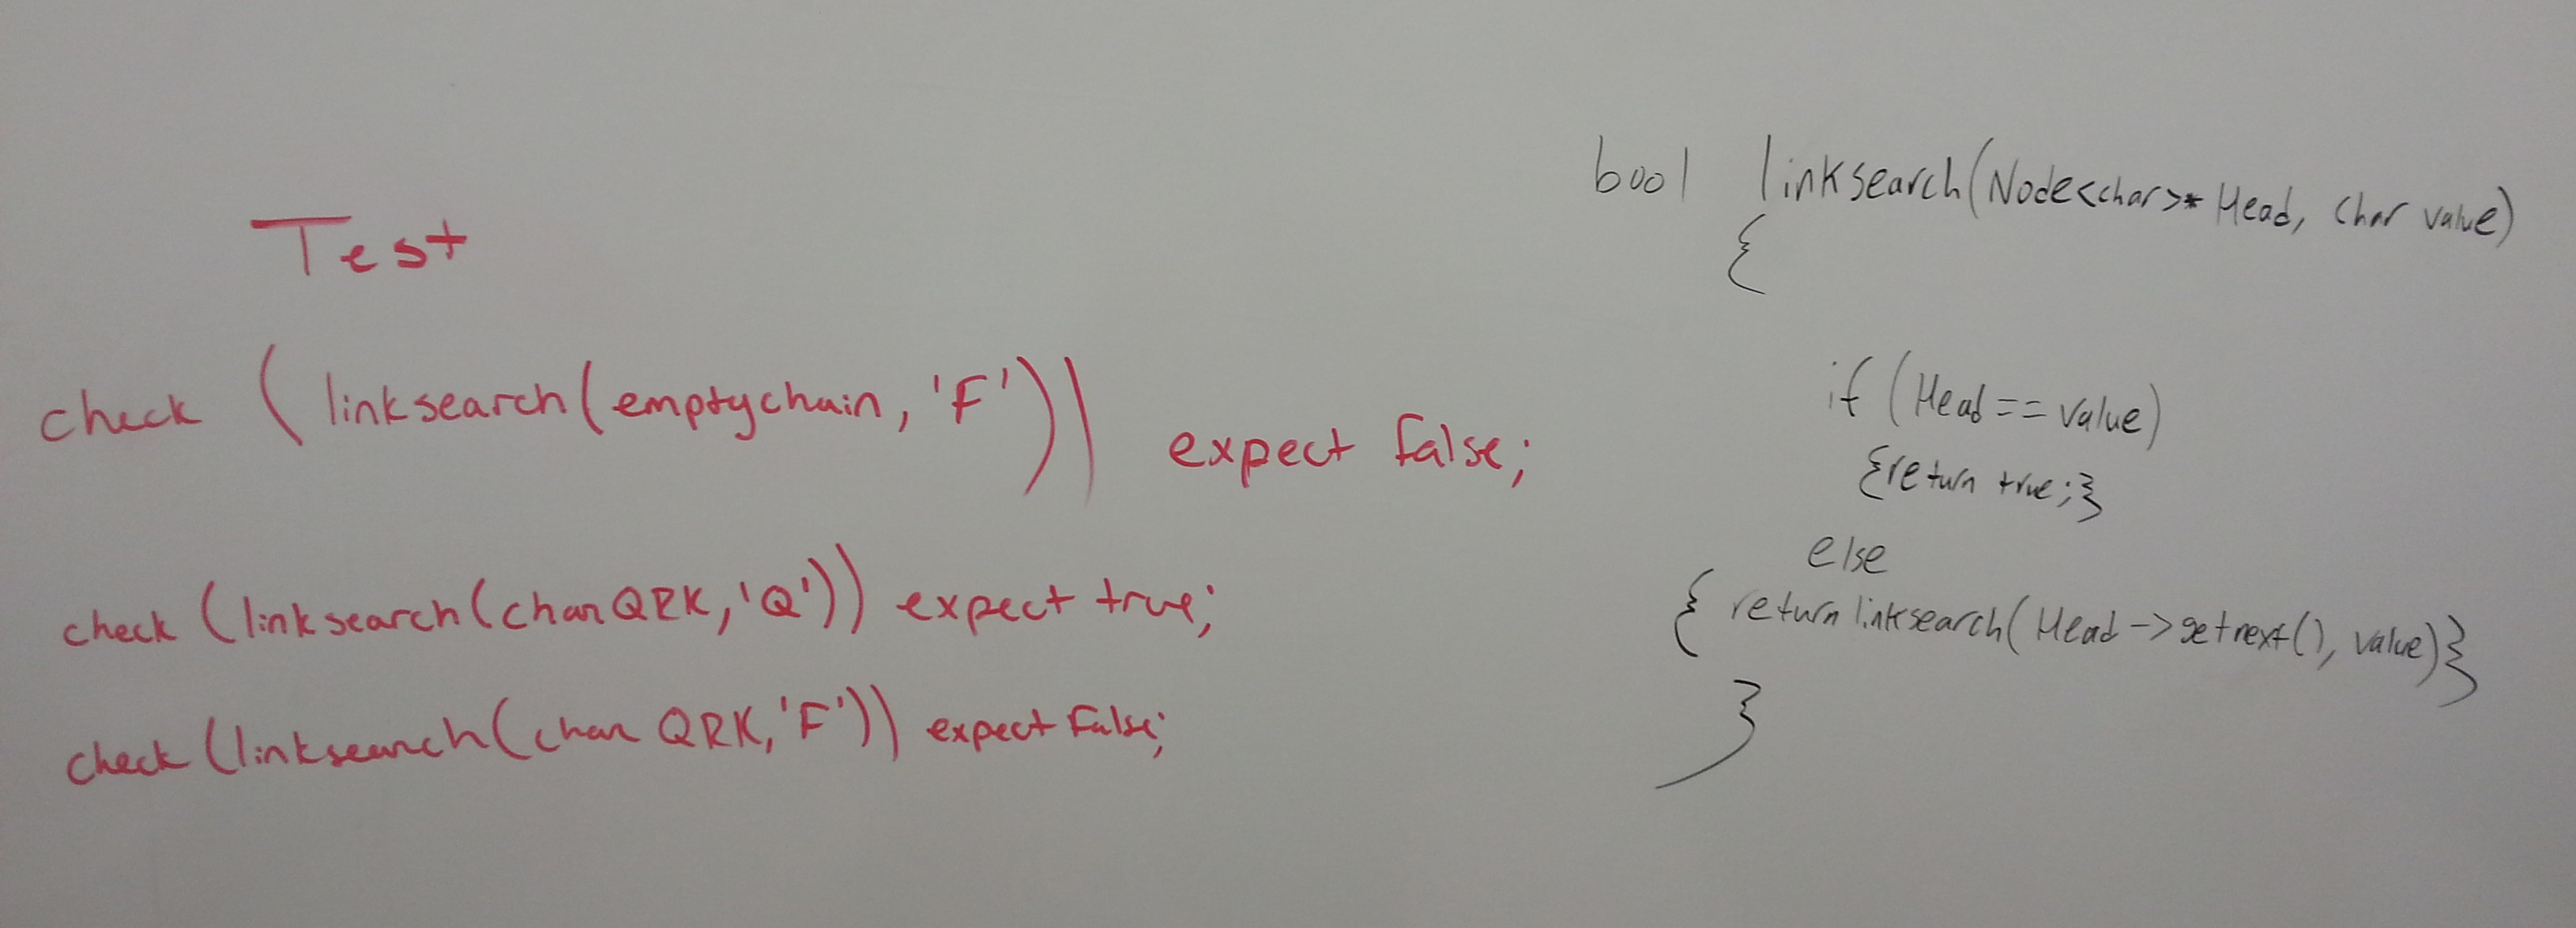 Test
check (linksearch(emptychain, 'F')) expect false;
check (linksearch(charQRK, 'Q')) expect true;
check (linksearch(char QRK, 'F')) expect False;
bool linksearch(Node<char>* Head, char value)
{
if (Head == value)
{return true;}
else
{ return linksearch(Head->getnext(), value)}
}